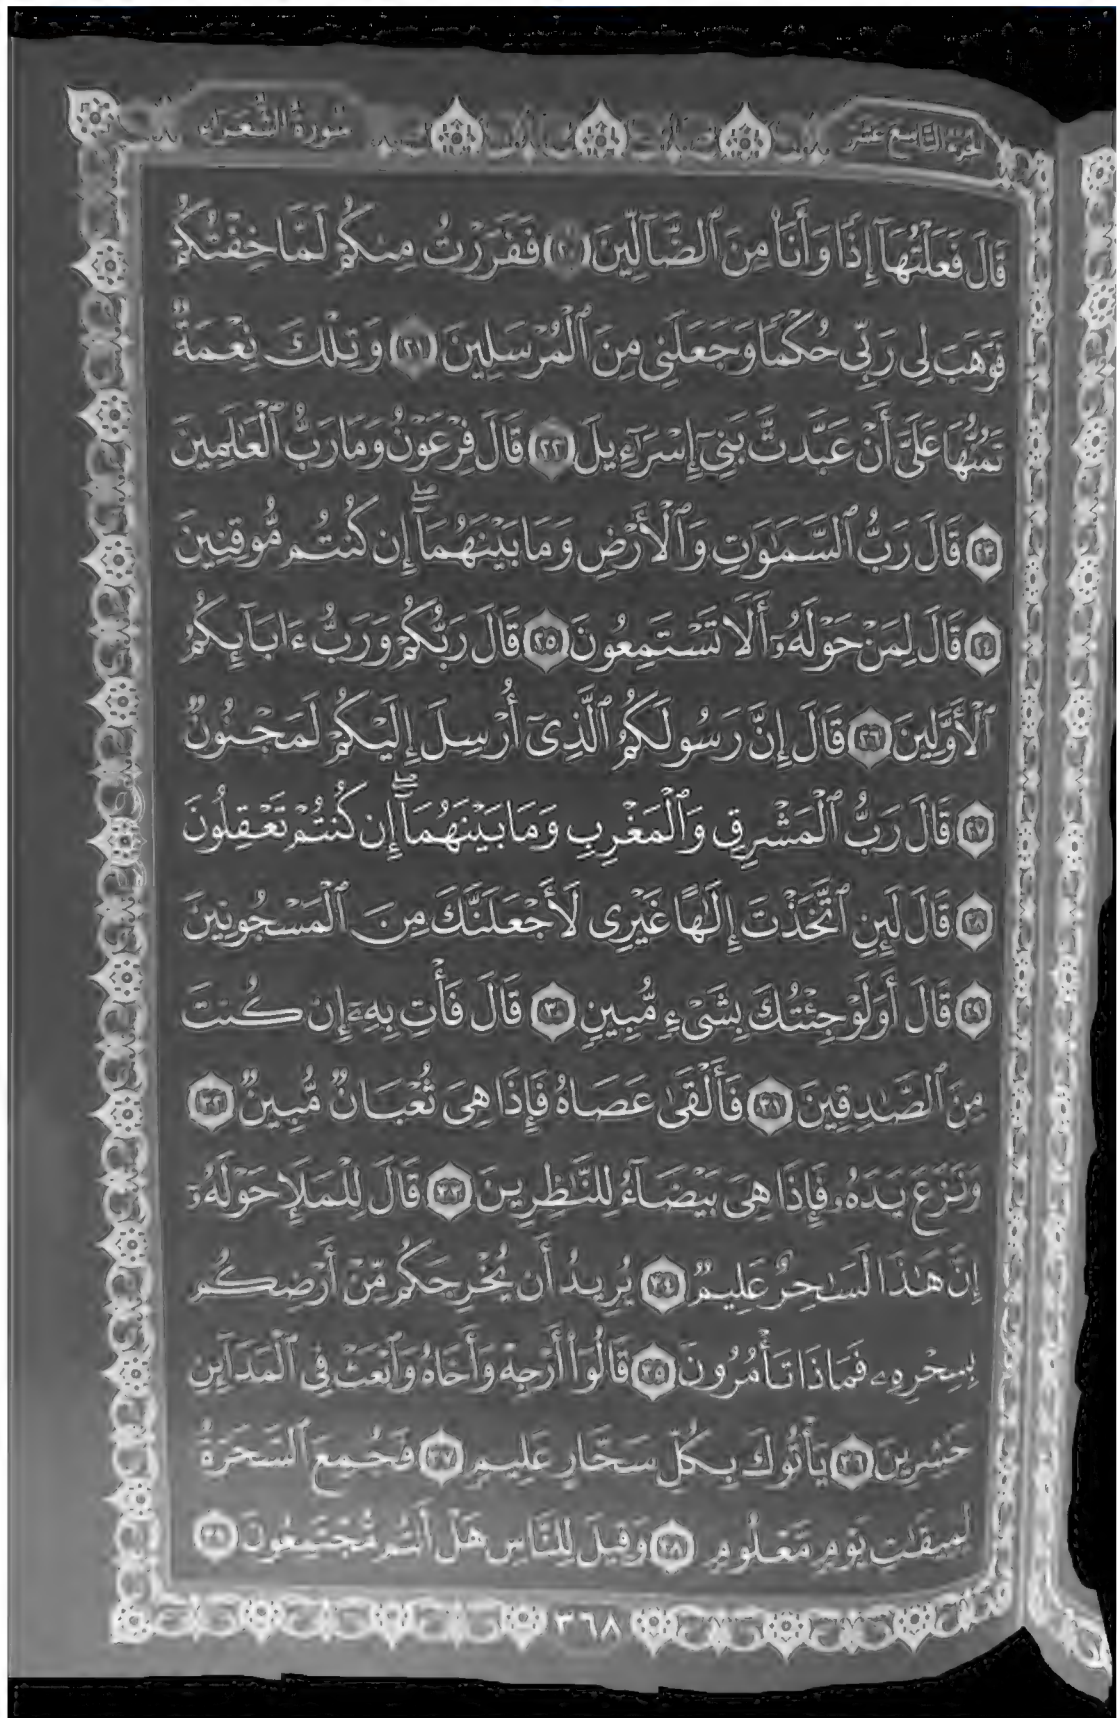 الجزء التاسع عشر
سورة الشعراء
قَالَ فَعَلْتُهَآ إِذًا وَأَنَا۠ مِنَ ٱلضَّآلِّينَ ٢٠ فَفَرَرْتُ مِنكُمْ لَمَّا خِفْتُكُمْ
فَوَهَبَ لِى رَبِّى حُكْمًا وَجَعَلَنِى مِنَ ٱلْمُرْسَلِينَ ٢١ وَتِلْكَ نِعْمَةٌ
تَمُنُّهَا عَلَىَّ أَنْ عَبَّدتَّ بَنِىٓ إِسْرَٰٓءِيلَ ٢٢ قَالَ فِرْعَوْنُ وَمَا رَبُّ ٱلْعَٰلَمِينَ
٢٣ قَالَ رَبُّ ٱلسَّمَٰوَٰتِ وَٱلْأَرْضِ وَمَا بَيْنَهُمَآ ۖ إِن كُنتُم مُّوقِنِينَ
٢٤ قَالَ لِمَنْ حَوْلَهُۥٓ أَلَا تَسْتَمِعُونَ ٢٥ قَالَ رَبُّكُمْ وَرَبُّ ءَابَآئِكُمُ
ٱلْأَوَّلِينَ ٢٦ قَالَ إِنَّ رَسُولَكُمُ ٱلَّذِىٓ أُرْسِلَ إِلَيْكُمْ لَمَجْنُونٌ
٢٧ قَالَ رَبُّ ٱلْمَشْرِقِ وَٱلْمَغْرِبِ وَمَا بَيْنَهُمَآ ۖ إِن كُنتُمْ تَعْقِلُونَ
٢٨ قَالَ لَئِنِ ٱتَّخَذْتَ إِلَٰهًا غَيْرِى لَأَجْعَلَنَّكَ مِنَ ٱلْمَسْجُونِينَ
٢٩ قَالَ أَوَلَوْ جِئْتُكَ بِشَىْءٍ مُّبِينٍ ٣٠ قَالَ فَأْتِ بِهِۦٓ إِن كُنتَ
مِنَ ٱلصَّٰدِقِينَ ٣١ فَأَلْقَىٰ عَصَاهُ فَإِذَا هِىَ ثُعْبَانٌ مُّبِينٌ ٣٢
وَنَزَعَ يَدَهُۥ فَإِذَا هِىَ بَيْضَآءُ لِلنَّٰظِرِينَ ٣٣ قَالَ لِلْمَلَإِ حَوْلَهُۥٓ
إِنَّ هَٰذَا لَسَٰحِرٌ عَلِيمٌ ٣٤ يُرِيدُ أَن يُخْرِجَكُم مِّنْ أَرْضِكُم
بِسِحْرِهِۦ فَمَاذَا تَأْمُرُونَ ٣٥ قَالُوٓا۟ أَرْجِهْ وَأَخَاهُ وَٱبْعَثْ فِى ٱلْمَدَآئِنِ
حَٰشِرِينَ ٣٦ يَأْتُوكَ بِكُلِّ سَحَّارٍ عَلِيمٍ ٣٧ فَجُمِعَ ٱلسَّحَرَةُ
لِمِيقَٰتِ يَوْمٍ مَّعْلُومٍ ٣٨ وَقِيلَ لِلنَّاسِ هَلْ أَنتُم مُّجْتَمِعُونَ ٣٩
٣٦٨